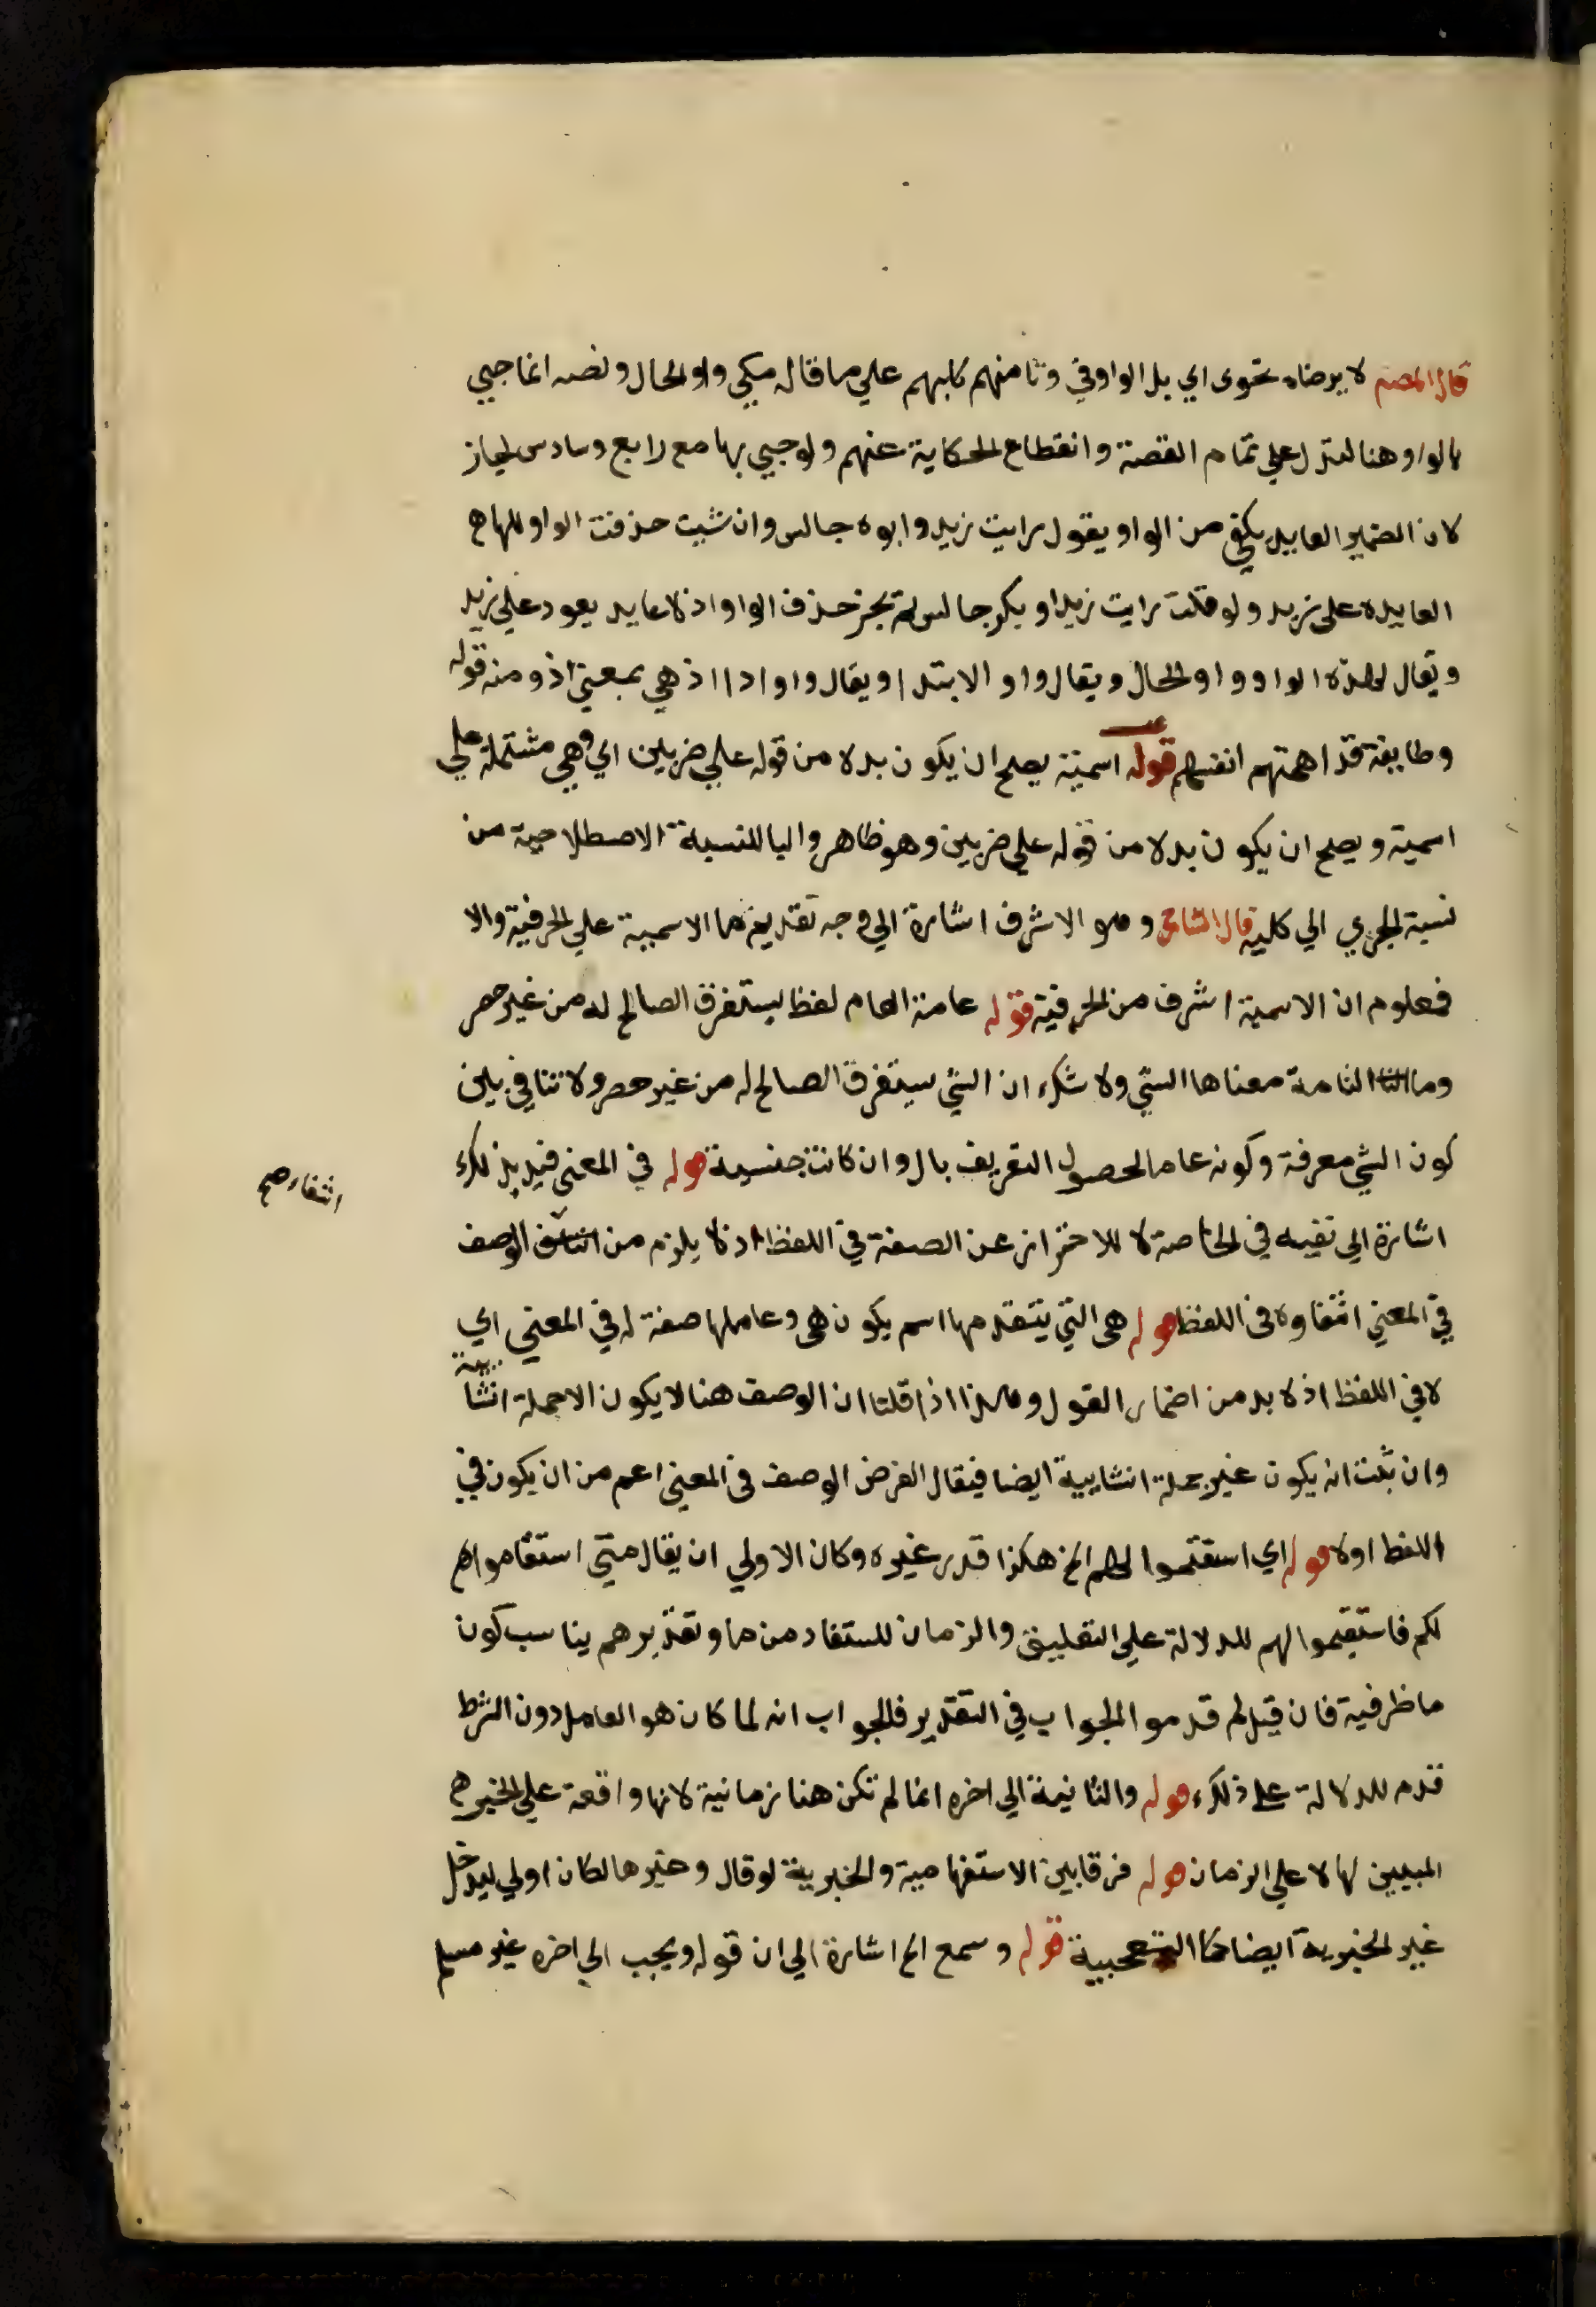 قال المصنف لا يرضاه نحوى اي بل الواو في وثامنهم كلبهم علي ما قال مكي واو الحال ونصه انما جيي
بالواو هنا لتدل علي تمام القصة وانقطاع الحكاية عنهم ولو جيي بها مع رابع وسادس لجاز
لان الضمير العايد يكفي من الواو يقول رايت زيد وابوه جالس وان شيت حذفت الواو للهاء
العايدة على زيد ولو قلت رايت زيدا وبكر جالس لم يجز حذف الواو اذ لا عايد يعود علي زيد
ويقال لهذه الواو واو الحال ويقال واو الابتدا ويقال واو اذ اذ هي بمعني اذ ومنه قوله
وطايفة قد اهمتهم انفسهم قوله اسمية يصح ان يكون بدلا من قوله علي ضربين اي وهي مشتملة علي
اسمية ويصح ان يكون بدلا من قوله علي ضربين وهو ظاهر واليا للنسبة الاصطلاحية من
نسبة الجزي الي كليه قال الشارح وهو الاشرف اشارة الي وجه تقديم ما الاسمية علي الحرفية والا
فمعلوم ان الاسمية اشرف من الحرفية قوله عامة العام لفظ يستغرق الصالح له من غير حصر
وما التامة معناها الشي ولا شك ان الشي يستغرق الصالح له من غير حصر ولا تنافي بين
كون الشي معرفة وكونه عاما لحصول التعريف بال وان كانت جنسية قوله في المعني قيد بذلك
اشارة الي نفيه في الخاصة لا للاحتراز عن الصفة في اللفظ اذ لا يلزم من الوصف
انتفاء صح
في المعني انتفاوه في اللفظ قوله هي التي يتقدمها اسم يكون هي وعاملها صفة له في المعني اي
لا في اللفظ اذ لا بد من اضمار القول وهذا اذا قلنا ان الوصف هنا لا يكون الا جملة انشاييه
وان ثبت انه يكون غير جملة انشايية ايضا فيقال الغرض الوصف في المعني اعم من ان يكون في
اللفظ اولا قوله اي استقيموا لهم الخ هكذا قدر غيره وكان الاولي ان يقال متي استقاموا
لكم فاستقيموا لهم للدلالة علي التعليق والزمان المستفاد من ما وتقديرهم يناسب كون
ما ظرفية فان قيل لم قدموا الجواب في التقدير فالجواب انه لما كان هو العامل دون الشرط
قدم للدلالة على ذلك قوله والثانية الي اخره انما لم تكن هنا زمانية لانها واقعة علي الخير
المبين لها لا علي الزمان قوله فرقا بين الاستفهامية والخبرية لو قال وغيرها لكان اولي ليدخل
غير الخبرية ايضا كالتعجبية قوله وسمع الخ اشارة الي ان قوله ويجب الي اخره غير مسلم